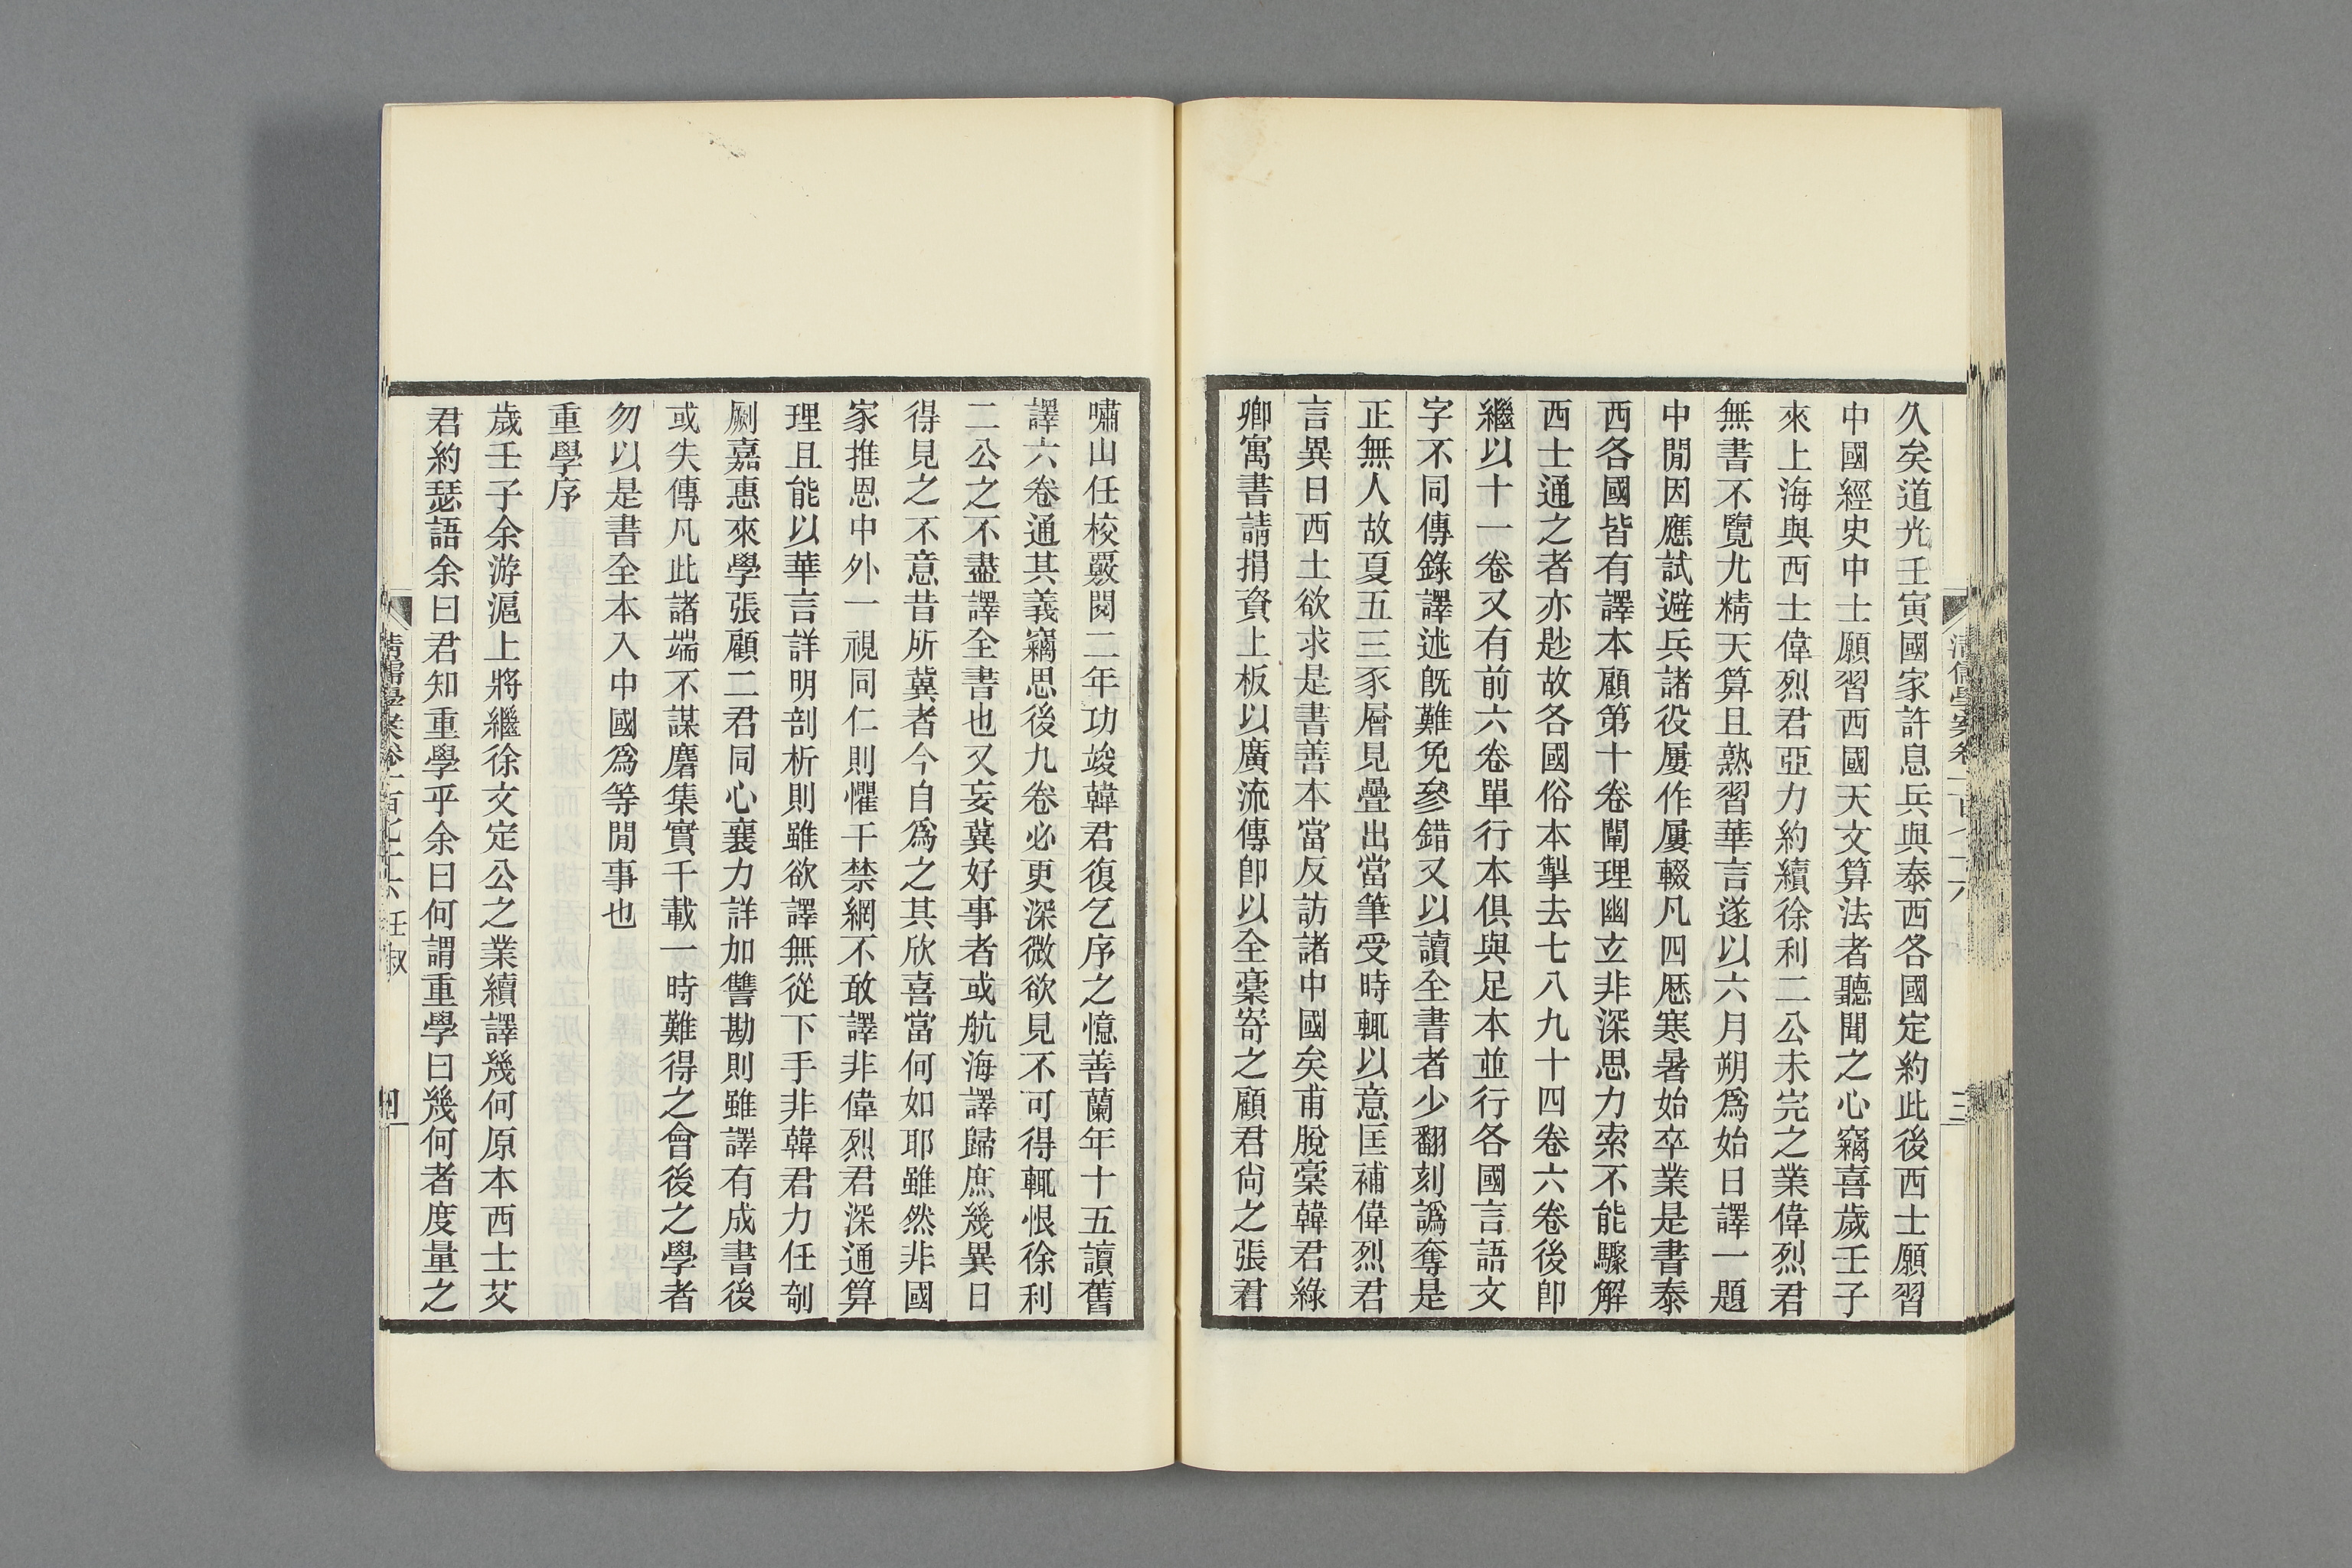 久矣道光壬寅國家許息兵與泰西各國定約此後西士願習
中國經史中士願習西國天文算法者聽聞之心竊喜歲壬子
來上海與西士偉烈君亞力約續徐利二公未完之業偉烈君
無書不覽尤精天算且熟習華言遂以六月朔爲始日譯一題
中閒因應試避兵諸役屢作屢輟凡四厯寒暑始卒業是書泰
西各國皆有譯本顧第十卷闡理幽玄非深思力索不能驟解
西士通之者亦尠故各國俗本掣去七八九十四卷六卷後卽
繼以十一卷又有前六卷單行本俱與足本並行各國言語文
字不同傳錄譯述既難免參錯又以讀全書者少翻刻譌奪是
正無人故夏五三豕層見疊出當筆受時輒以意匡補偉烈君
言異日西土欲求是書善本當反訪諸中國矣甫脫稾韓君綠
卿寓書請捐資上板以廣流傳卽以全稾寄之顧君尙之張君
嘯山任校覈閱二年功竣韓君復乞序之憶善蘭年十五讀舊
譯六卷通其義竊思後九卷必更深微欲見不可得輒恨徐利
二公之不盡譯全書也又妄冀好事者或航海譯歸庶幾異日
得見之不意昔所冀者今自爲之其欣喜當何如耶雖然非國
家推恩中外一視同仁則懼干禁網不敢譯非偉烈君深通算
理且能以華言詳明剖析則雖欲譯無從下手非韓君力任剞
劂嘉惠來學張顧二君同心襄力詳加讐勘則雖譯有成書後
或失傳凡此諸端不謀麕集實千載一時難得之會後之學者
勿以是書全本入中國爲等閒事也
重學序
歲壬子余游滬上將繼徐文定公之業續譯幾何原本西士艾
君約瑟語余曰君知重學乎余曰何謂重學曰幾何者度量之
清儒學案卷一百七十六 壬叔
四
三